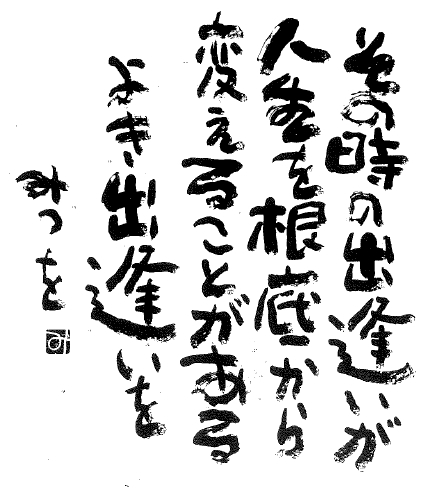 その時の出逢いが
人生を根底から
変えることがある
よき出逢いを
みつを